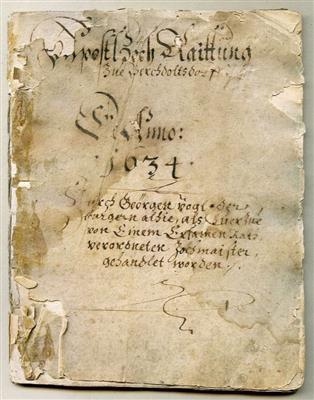 Apostl Zech Raittung
Zue Perchdoltstorf
Anno:
1634
Durch Geörgen Vogl, der
burgern alhie, als
von Einem Ersamen Rath
verordneten Zechmaister,
gehandlet worden